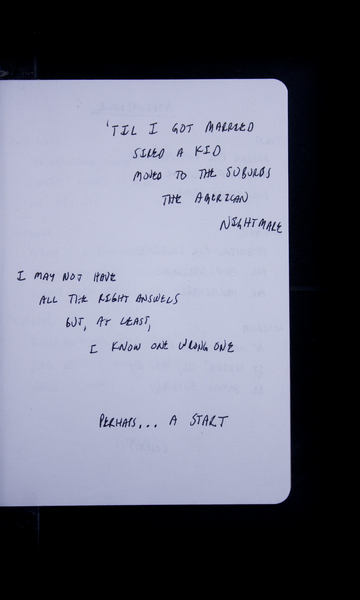 'TIL I GOT MARRIED
SIRED A KID
MOVED TO THE SUBURBS
THE AMERICAN
NIGHTMARE
I MAY NOT HAVE
ALL THE RIGHT ANSWERS
BUT, AT LEAST,
I KNOW ONE WRONG ONE
PERHAPS... A START